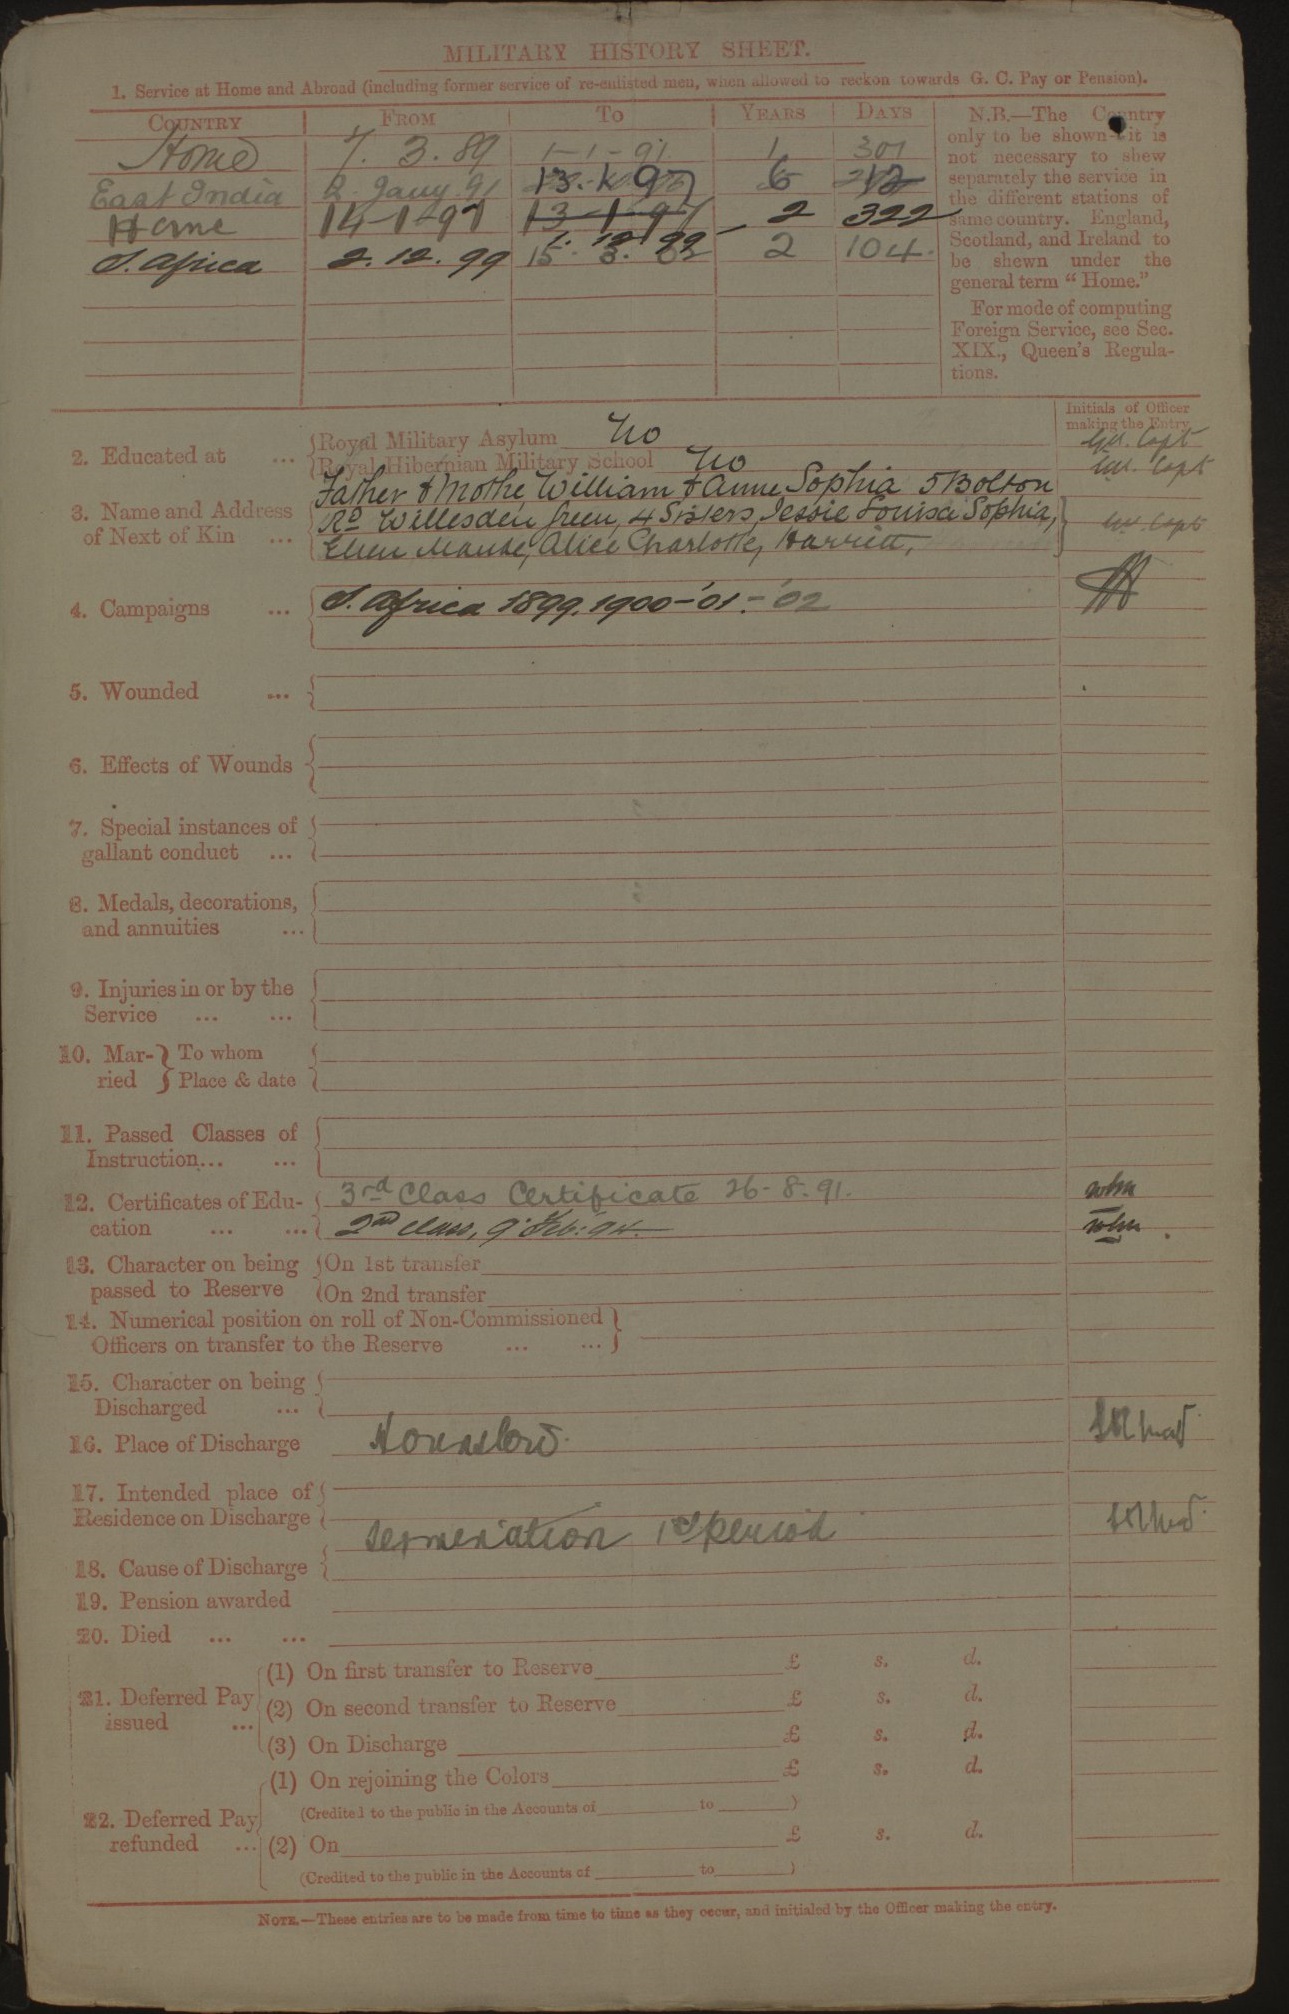 MILITARY HISTORY SHEET.
1. Service at Home and Abroad (including former service of re-enlisted men, when allowed to reckon towards G. C. Pay or Pension).
COUNTRY FROM TO YEARS DAYS
Home 7. 3. 89 1-1-91 1 301
East India 2 Jany 91 13.1.97 6 12
Home 14-1-97 13-1-97 2 322
1. 12. 99
S. Africa 2. 12. 99 15. 3. 02 2 104.
N.B.—The Country
only to be shown—it is
not necessary to shew
separately the service in
the different stations of
same country. England,
Scotland, and Ireland to
be shewn under the
general term "Home."
For mode of computing
Foreign Service, see Sec.
XIX., Queen's Regula-
tions.
Initials of Officer
making the Entry
2. Educated at ... Royal Military Asylum No Capt
Royal Hibernian Military School No Capt
3. Name and Address of Next of Kin ... Father & Mothe William & Anne Sophia 5 Bolton
Rd Willesden Green, 4 Sisters, Jessie Louisa Sophia, Capt
Ellen Maude, Alice Charlotte, Harriett,
4. Campaigns ... S. Africa 1899. 1900-'01.-'02
5. Wounded ...
6. Effects of Wounds
7. Special instances of
gallant conduct ...
8. Medals, decorations,
and annuities ...
9. Injuries in or by the
Service ... ...
10. Mar- To whom
ried Place & date
11. Passed Classes of
Instruction... ...
12. Certificates of Edu- 3rd Class Certificate 26-8.91.
cation ... ... 2nd Class, 9 Feb: 94.
13. Character on being On 1st transfer
passed to Reserve On 2nd transfer
14. Numerical position on roll of Non-Commissioned
Officers on transfer to the Reserve ... ...
15. Character on being
Discharged ...
16. Place of Discharge Hounslow
17. Intended place of
Residence on Discharge
18. Cause of Discharge Termination 1st period
19. Pension awarded
20. Died ... ...
21. Deferred Pay
issued ...
(1) On first transfer to Reserve £ s. d.
(2) On second transfer to Reserve £ s. d.
(3) On Discharge £ s. d.
22. Deferred Pay
refunded ...
(1) On rejoining the Colors £ s. d.
(Credited to the public in the Accounts of to )
(2) On £ s. d.
(Credited to the public in the Accounts of to )
NOTE.—These entries are to be made from time to time as they occur, and initialed by the Officer making the entry.